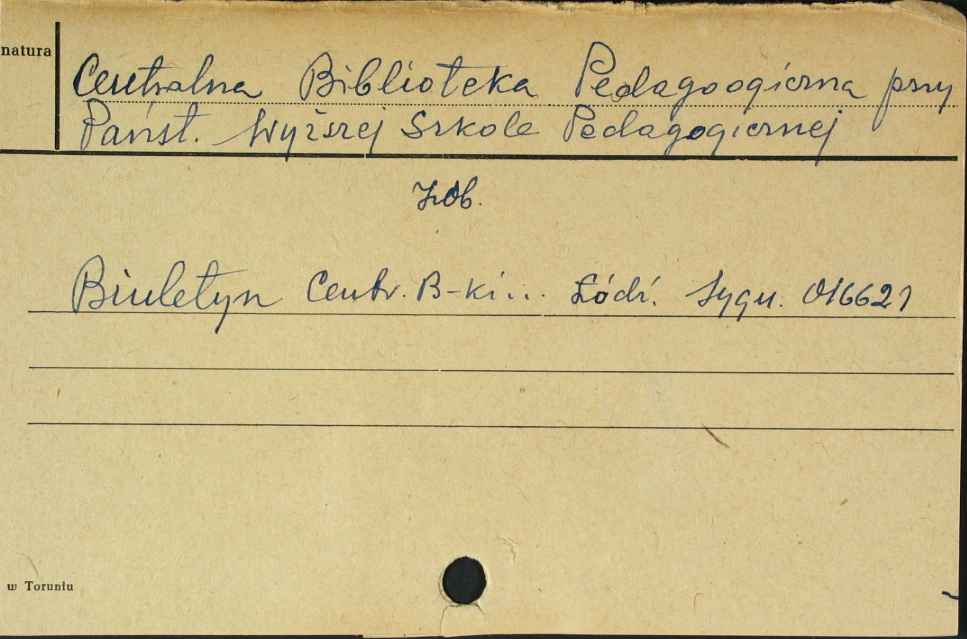 natura
Centralna Biblioteka Pedagoogiczna przy
Państ. Wyższej Szkole Pedagogicznej
Zob.
Biuletyn Centr. B-ki... Łódź. Sygn. 016621
w Toruniu